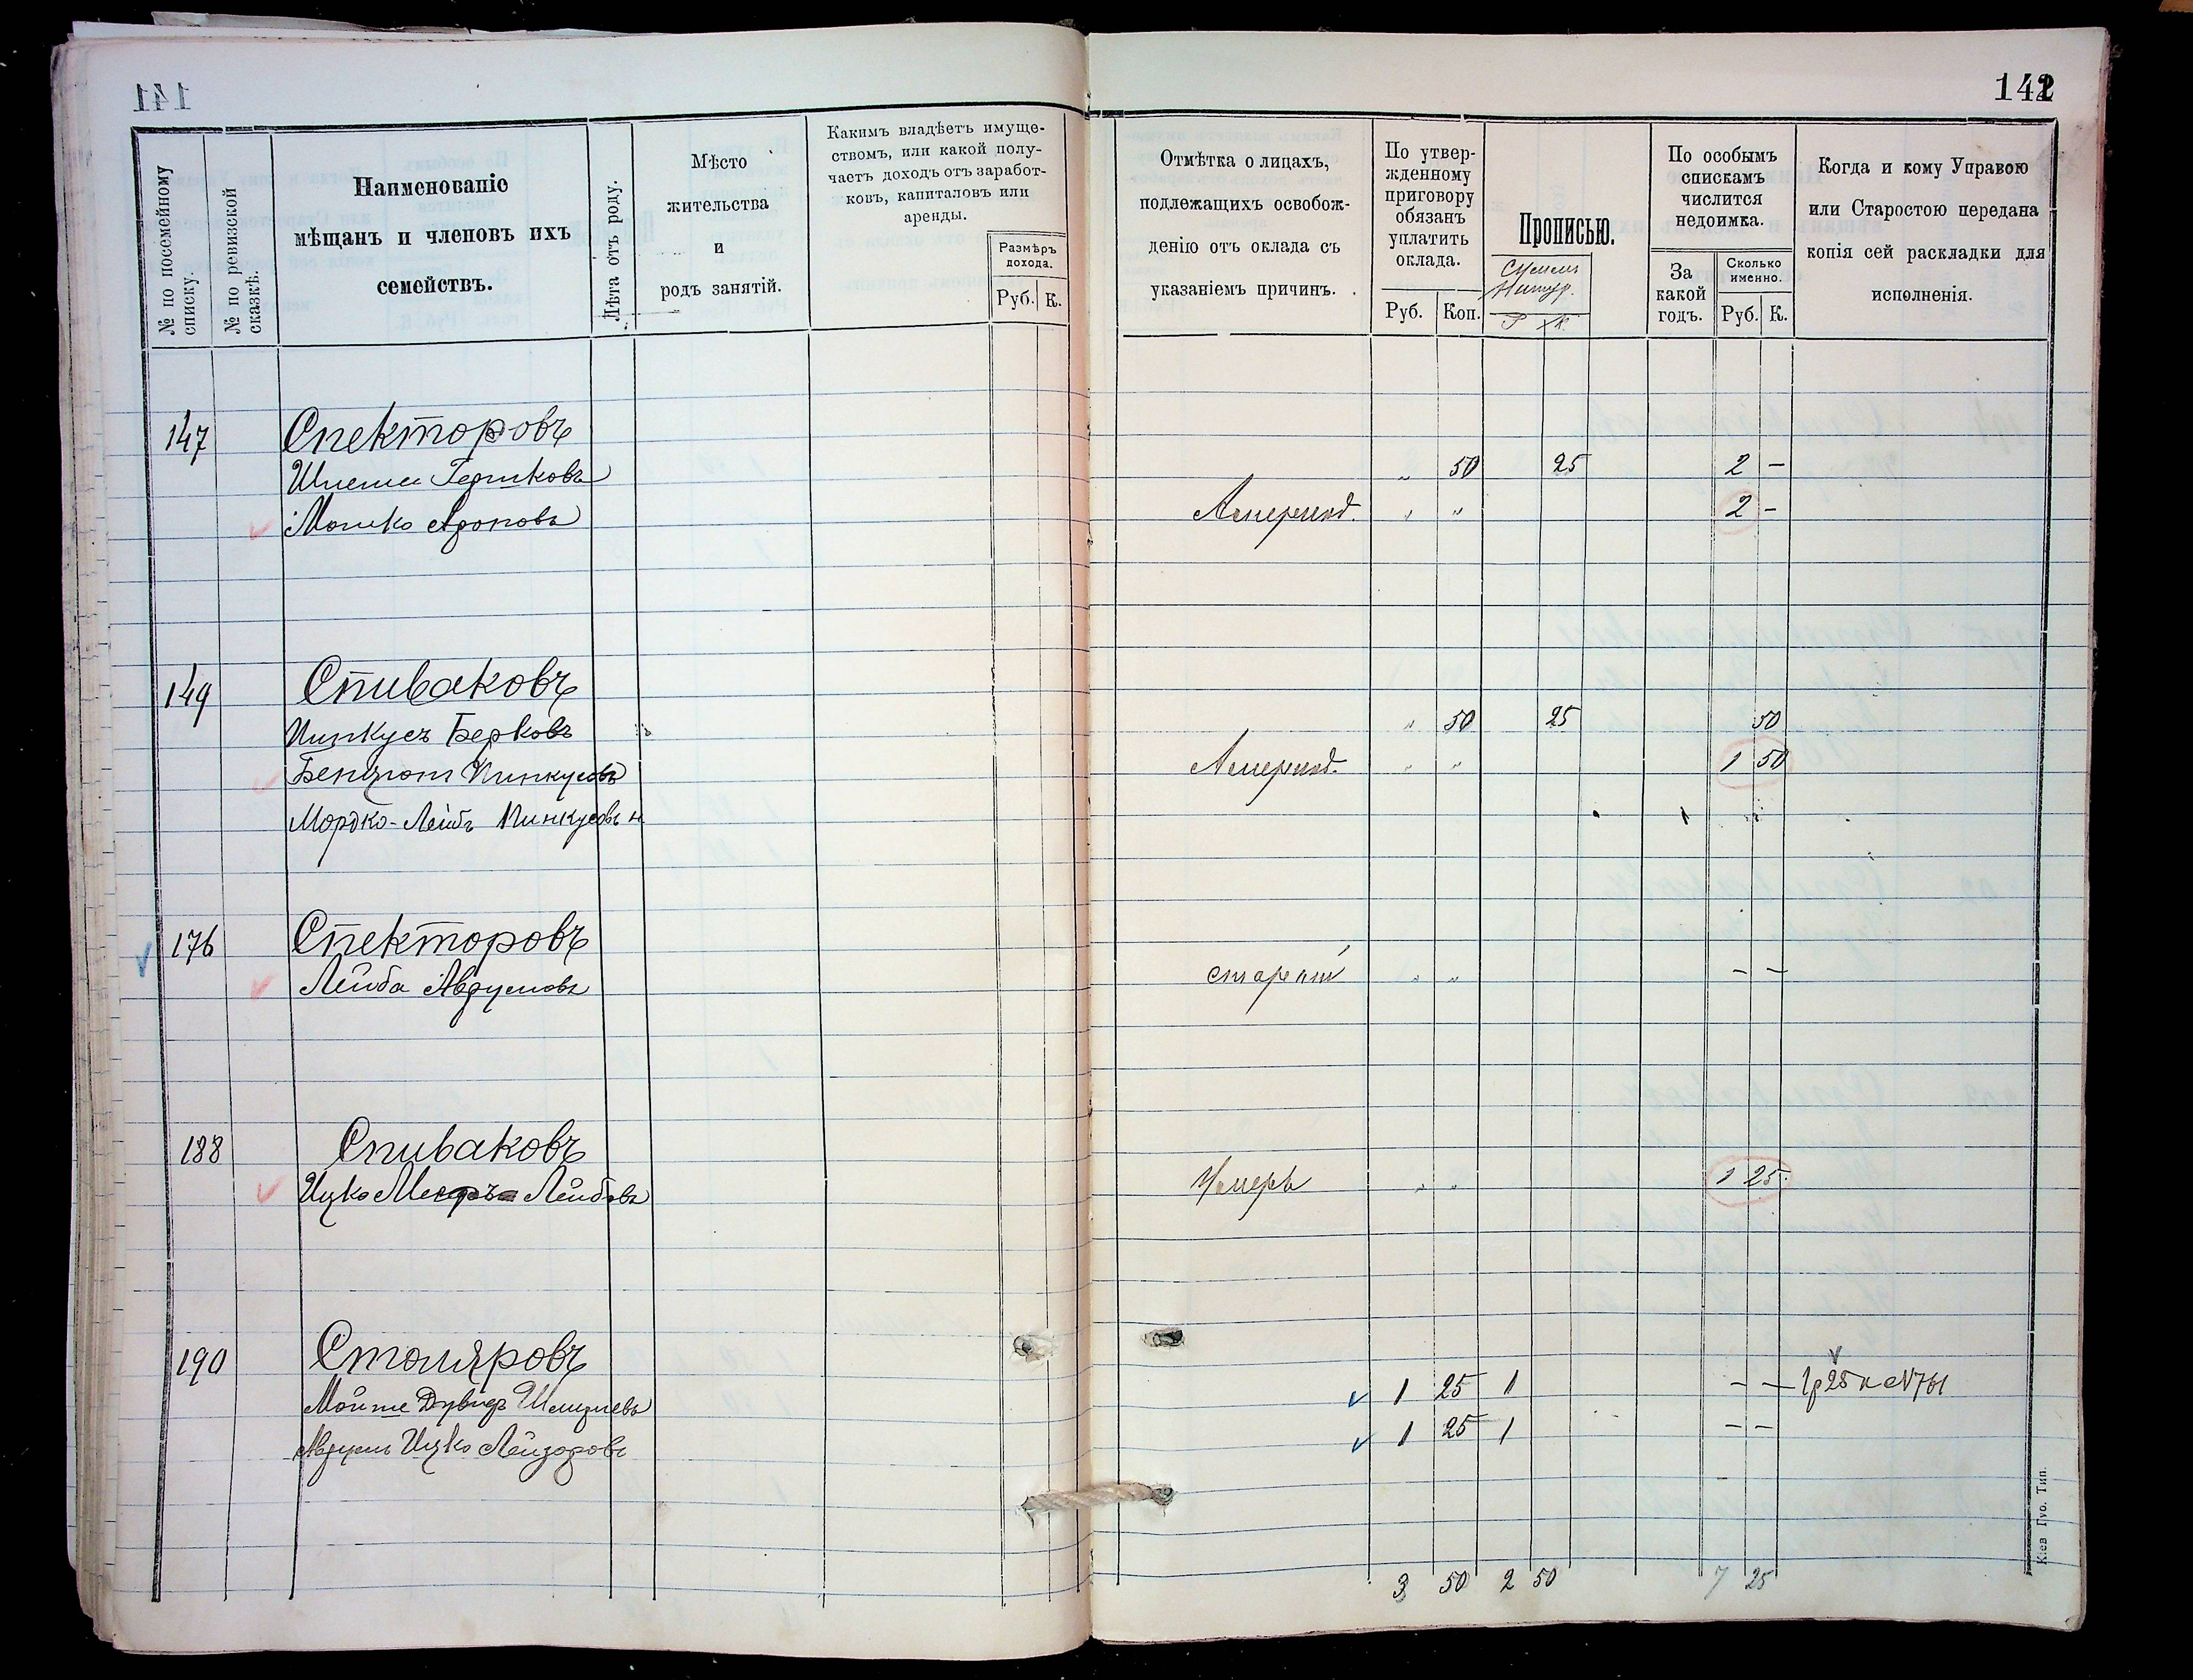 141
142
№ по посемейному списку.
№ по ревизской сказкѣ.
Наименованіе
мѣщанъ и членовъ ихъ
семействъ.
Лѣта отъ роду.
Мѣсто
жительства
и
родъ занятій.
Какимъ владѣетъ имуще-
ствомъ, или какой полу-
чаетъ доходъ отъ заработ-
ковъ, капиталовъ или
аренды.
Размѣръ
дохода.
Руб. К.
Отмѣтка о лицахъ,
подлежащихъ освобож-
денію отъ оклада съ
указаніемъ причинъ.
По утвер-
жденному
приговору
обязанъ
уплатить
оклада.
Руб. Коп.
Прописью.
Р К
По особымъ
спискамъ
числится
недоимка.
За
какой
годъ.
Сколько
именно.
Руб. К.
Когда и кому Управою
или Старостою передана
копія сей раскладки для
исполненія.
147 Спекторовъ
Гершковъ " 50 25 2 -
Мошко Ароновъ " " 2 -
149 Спиваковъ
Пинкусъ Берковъ " 50 25 50
Бенціонъ Пинкусовъ " " 1 50
Мордко-Лейбъ Пинкусовъ н
176 Спекторовъ
Лейба Аврумовъ " " - -
188 Спиваковъ
Ицко Лейбовъ Умеръ " " 1 25
190 Столяровъ
Дувидъ 1 25 1 - - 1р25к №761
Аврумъ Ицко Лейзоровъ 1 25 1 - -
3 50 2 50 7 25
Кіев Губ. Тип.